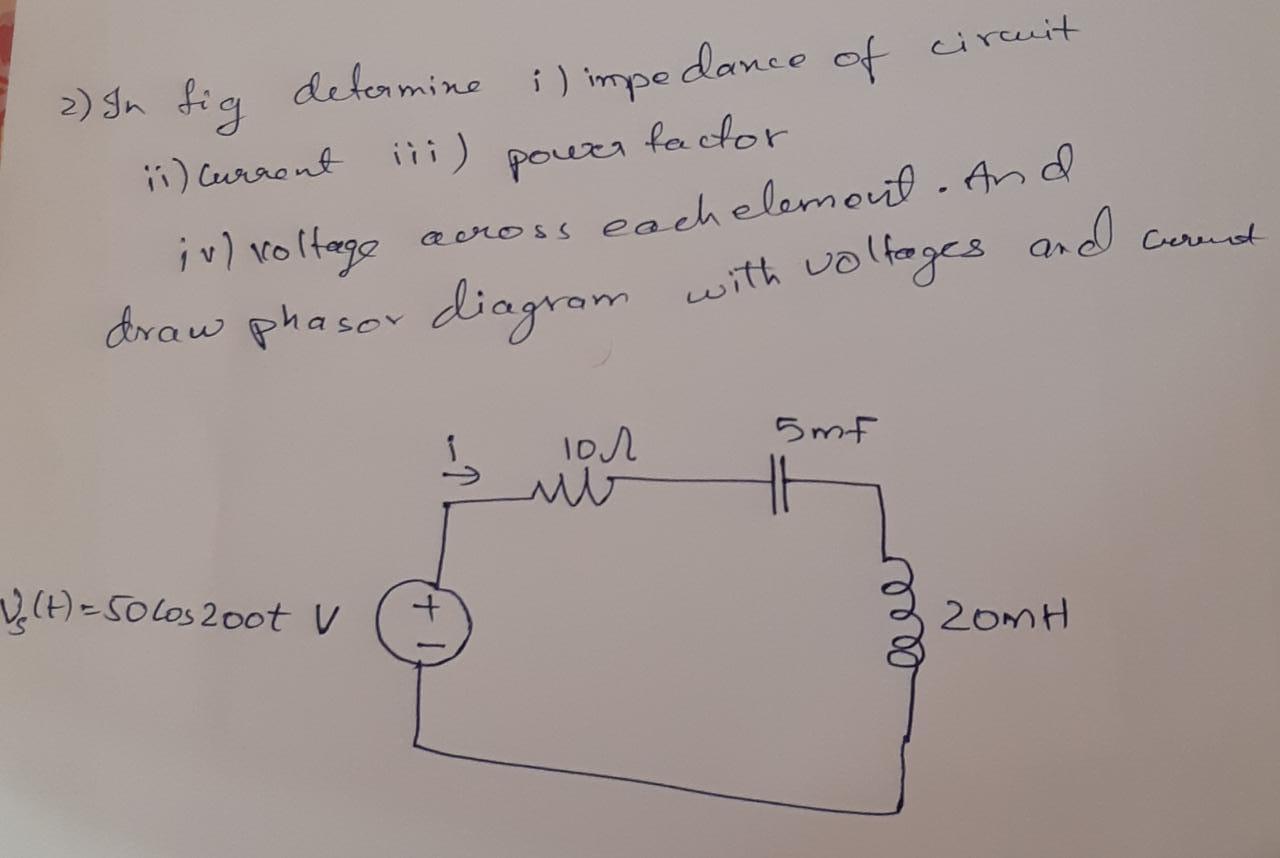 2) In fig determine i) impedance of circuit
ii) Current iii) power factor
iv) voltage across each element. And
draw phasor diagram with voltages and current
i
10Ω
5mF
Vs(t)=50cos200t V
+
-
20mH